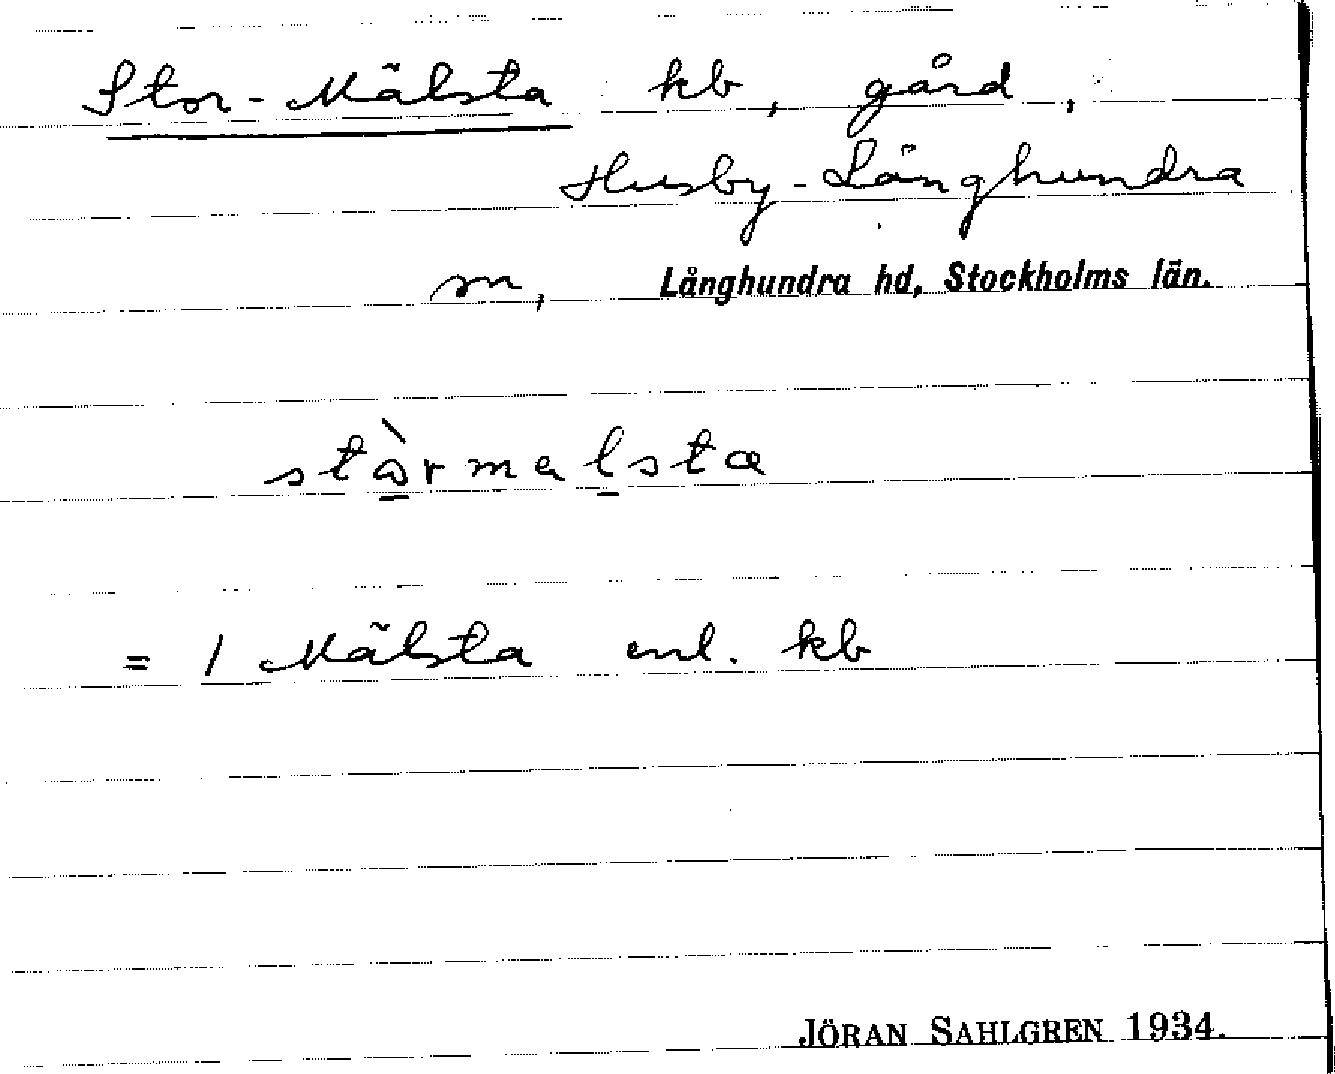 Stor-Mälsta kb, gård,
Husby-Långhundra
sn, Långhundra hd, Stockholms län.
stὼ̱rmaḻsta
= 1 Mälsta enl. kb
JÖRAN SAHLGREN 1934.